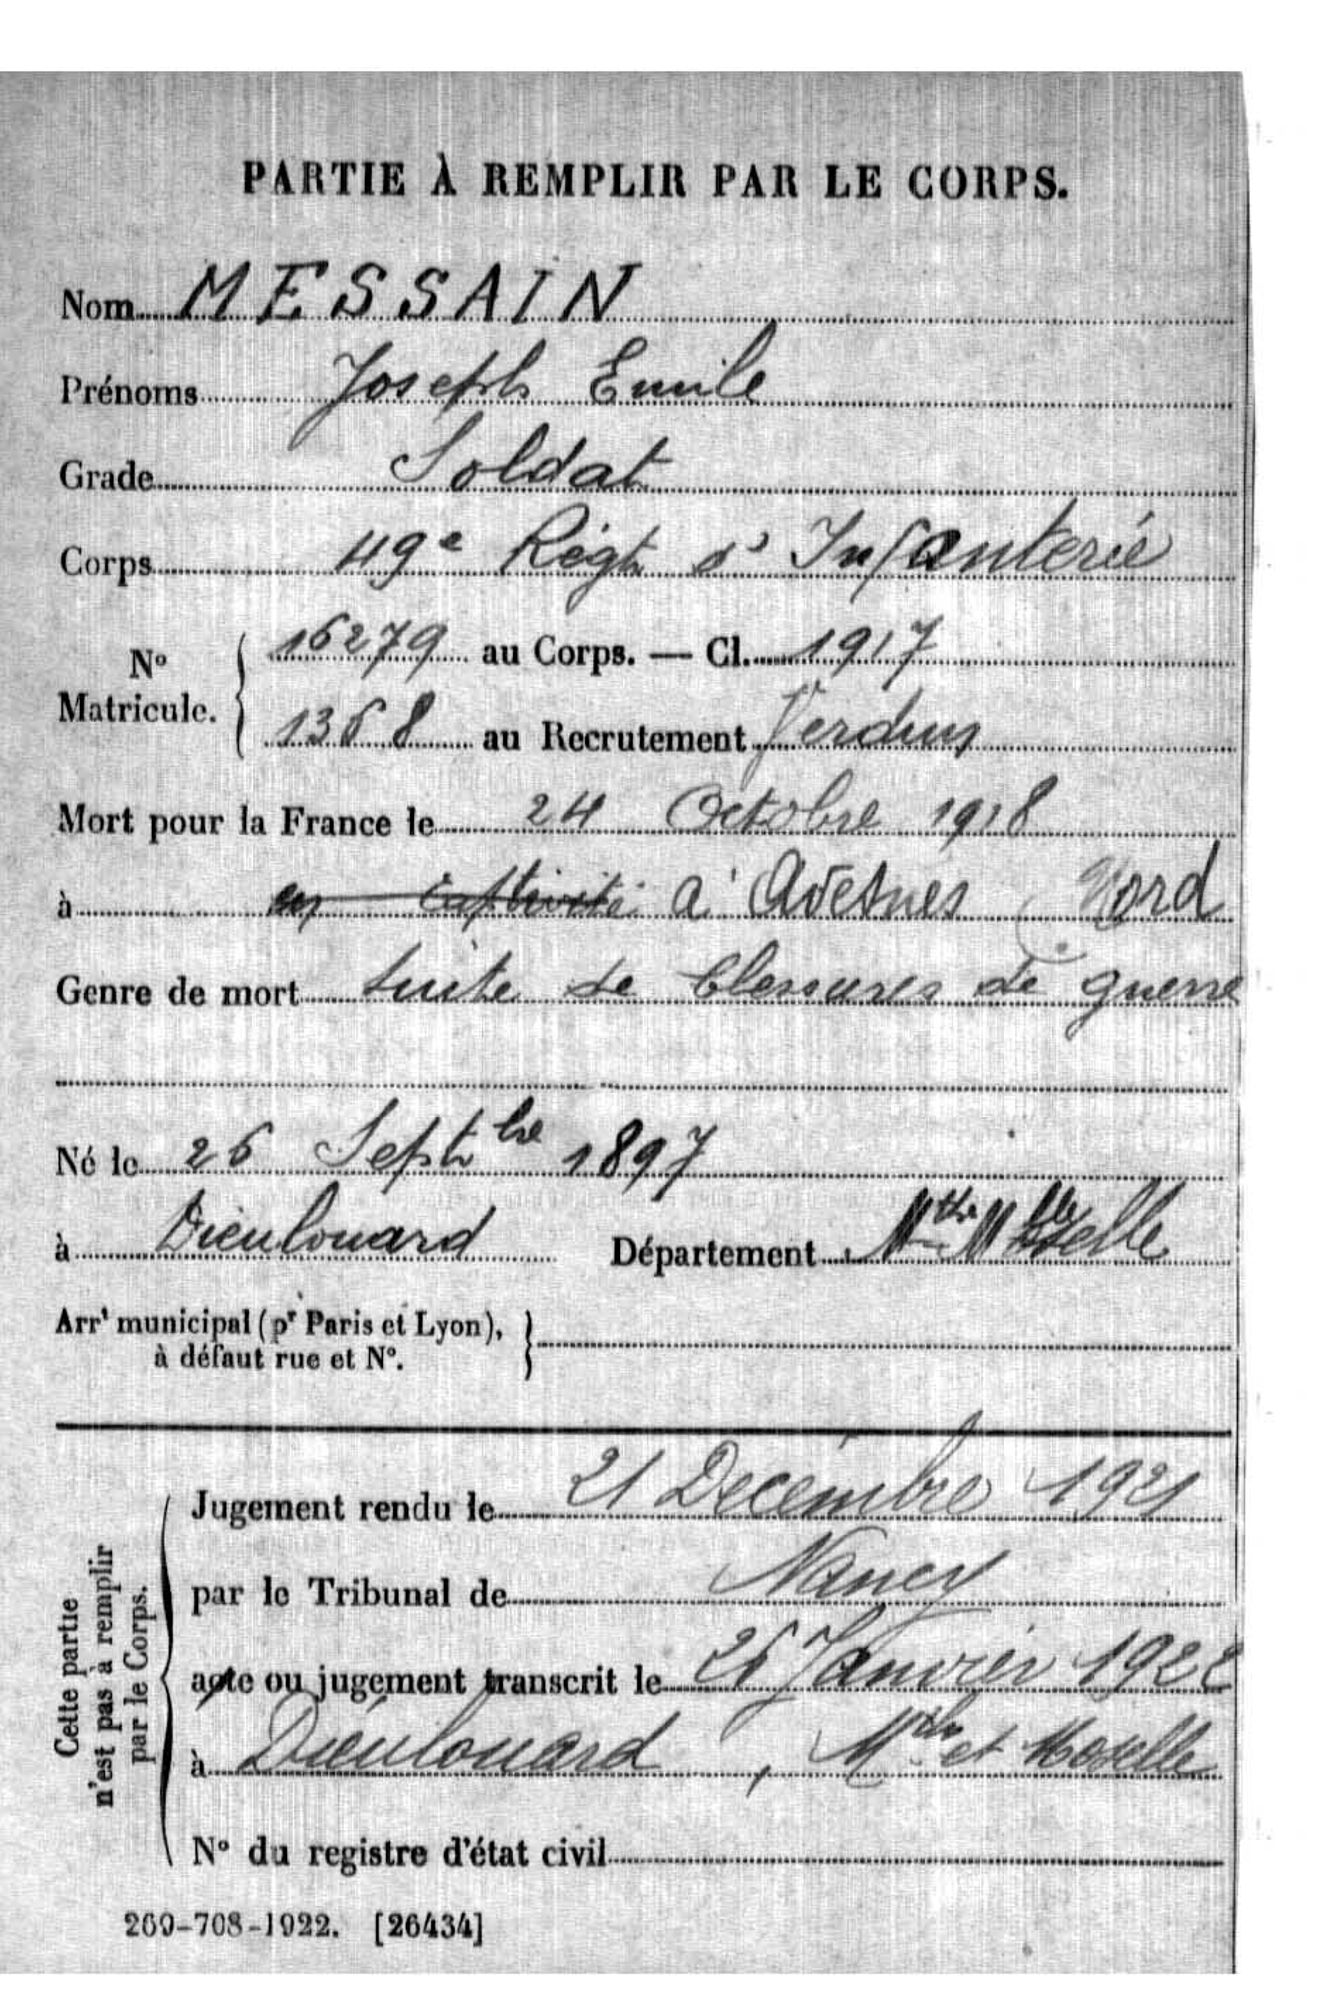 PARTIE À REMPLIR PAR LE CORPS.
Nom MESSAIN
Prénoms Joseph Emile
Grade Soldat
Corps 49e Régt d'Infanterie
No Matricule. { 16279 au Corps. — Cl. 1917
1368 au Recrutement Verdun
Mort pour la France le 24 Octobre 1918
à en captivité à Avesnes (Nord
Genre de mort suite de blessures de guerre
Né le 26 Septbre 1897
à Dieulouard Département Mthe Moselle
Arrt municipal (pr Paris et Lyon), }
à défaut rue et No.
Cette partie
n'est pas à remplir
par le Corps.
Jugement rendu le 21 Décembre 1921
par le Tribunal de Nancy
acte ou jugement transcrit le 26 Janvier 1922
à Dieulouard, Mthe et Moselle
No du registre d'état civil
260-708-1922. [26434]